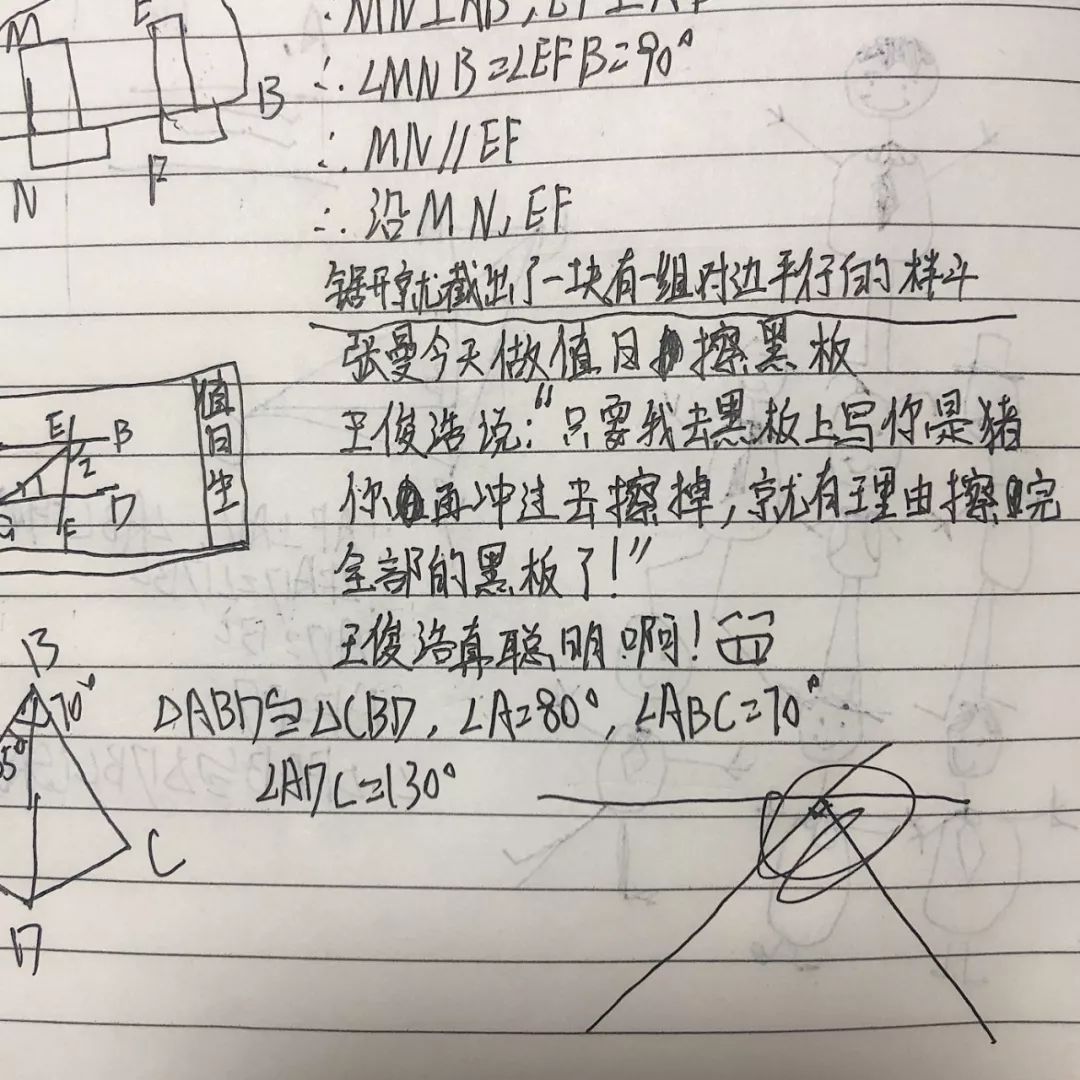 ∵MN⊥AB,EF⊥AF
∴∠MNB=∠EFB=90°
∴MN//EF
∴沿MN,EF
锯开就截出了一块有一组对边平行的样斗
张曼今天做值日擦黑板
王俊浩说:“只要我去黑板上写你是猪
你再冲过去擦掉,就有理由擦完
全部的黑板了!”
王俊浩真聪明啊!
△ABD≌△CBD,∠A=80°,∠ABC=70°
∠ADC=130°
M
E
B
N
F
值日生
E
B
2
1
G
F
D
B
70°
35°
C
D